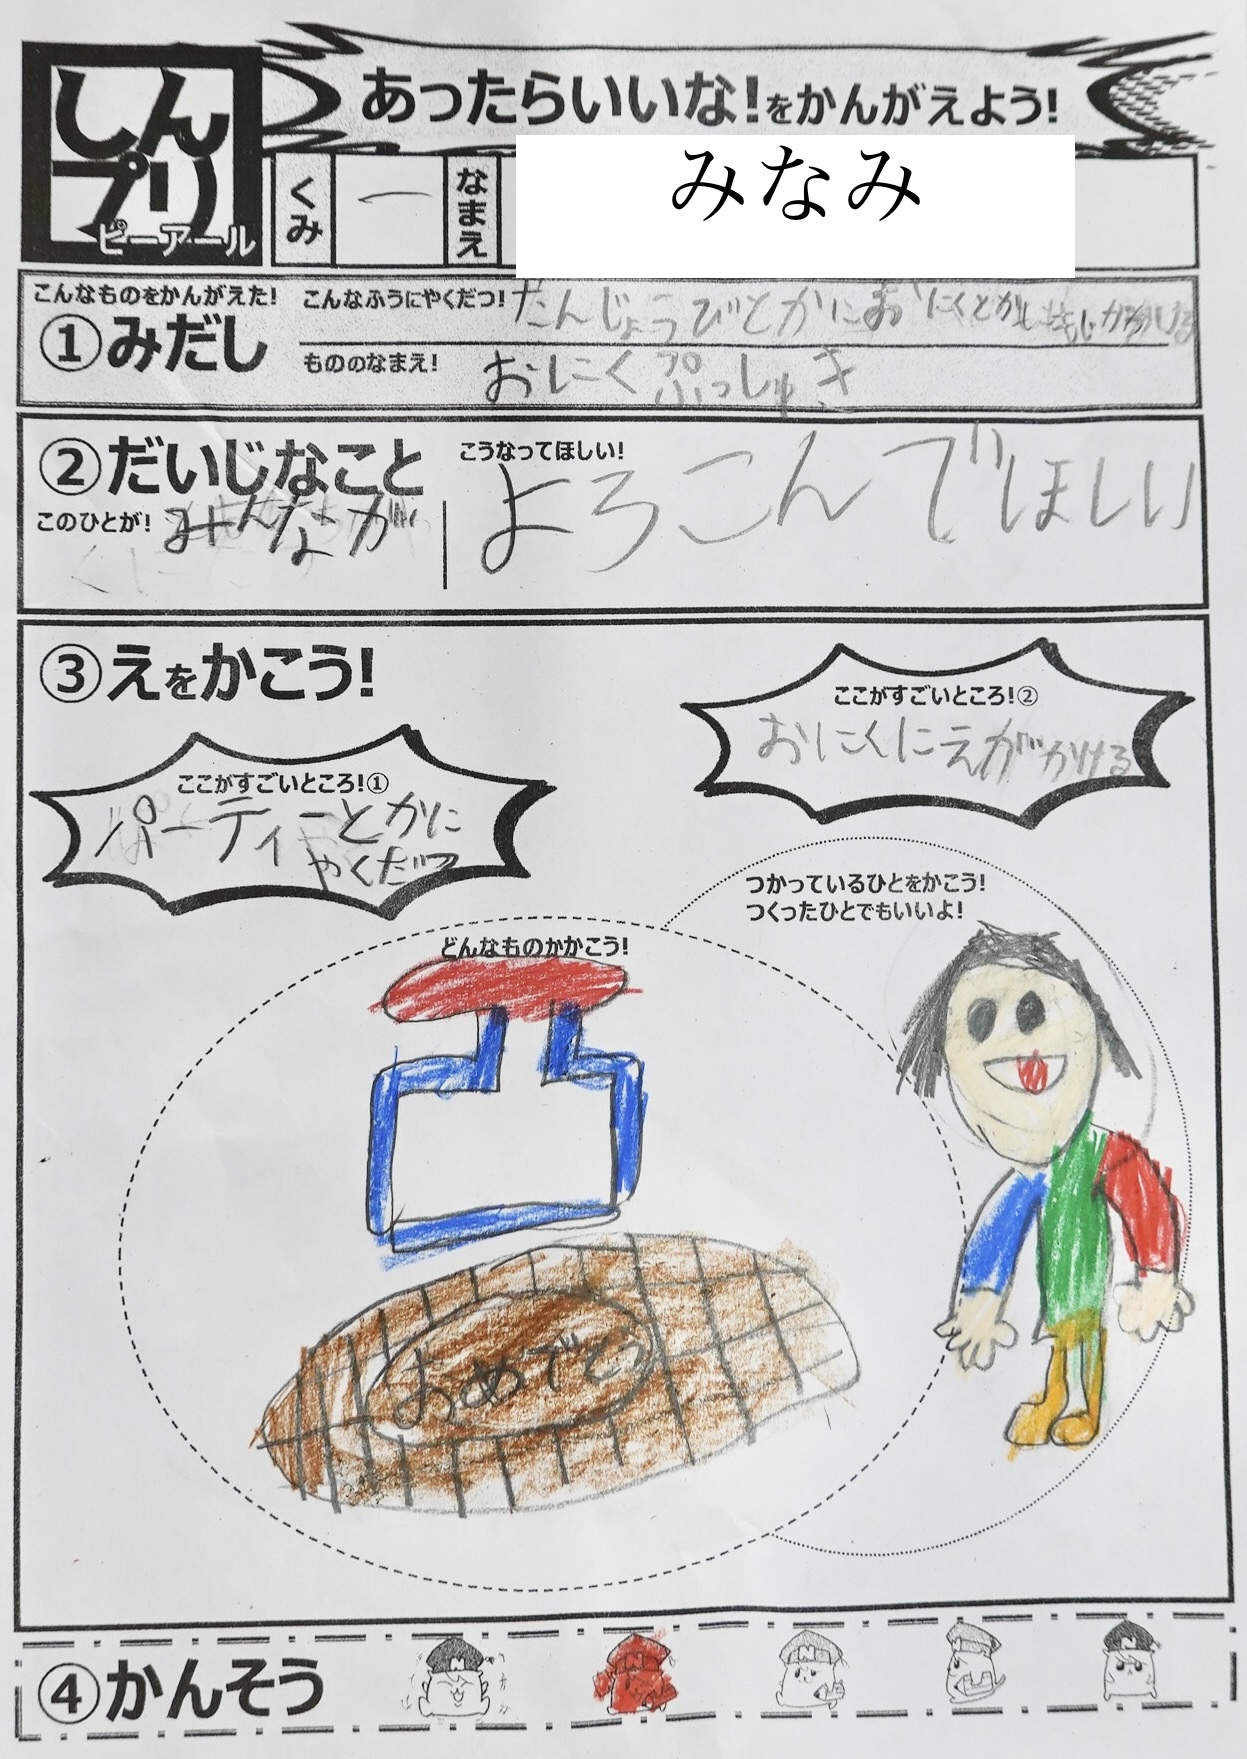 しん
プリ
ピーアール
あったらいいな!をかんがえよう!
くみ
一
なまえ
みなみ
こんなものをかんがえた!
①みだし
こんなふうにやくだつ!
たんじょうびとかにおにくとか
もののなまえ!
おにくぷっしゅき
②だいじなこと
このひとが!
みんなが
こうなってほしい!
よろこんでほしい
③えをかこう!
ここがすごいところ!①
パーティーとかに
やくだつ
ここがすごいところ!②
おにくにえがかける
つかっているひとをかこう!
つくったひとでもいいよ!
どんなものかかこう!
おめでと
④かんそう
N
N
N